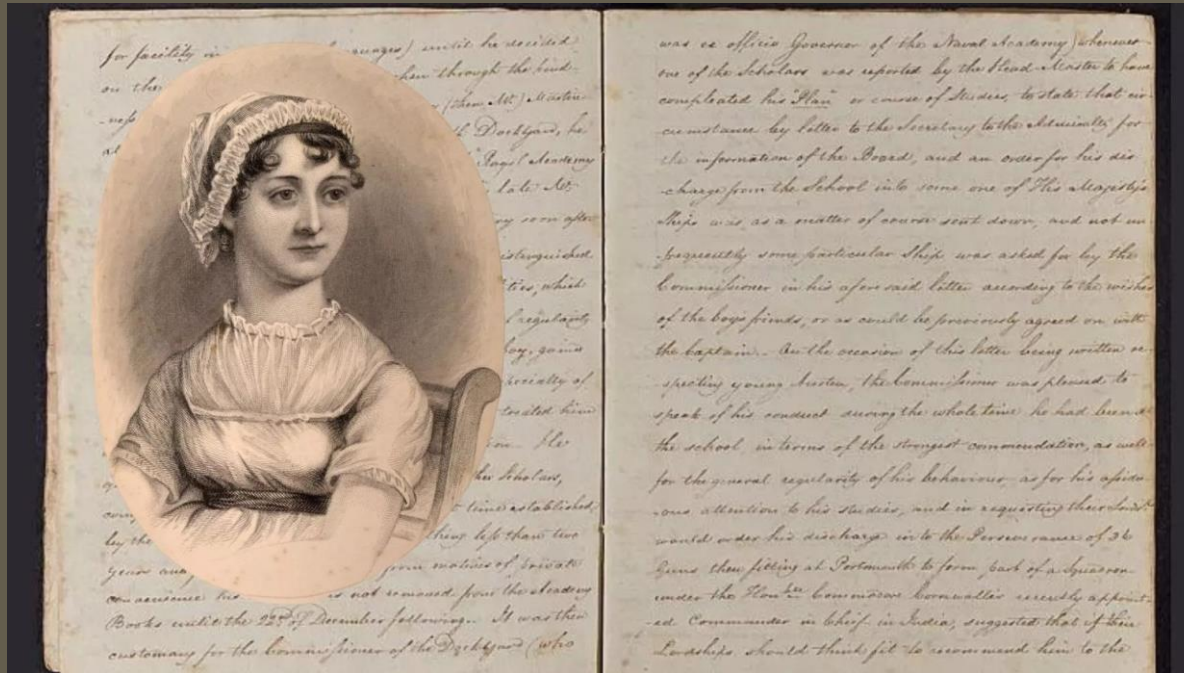 for facility in                    guages) until he decided
on the                    when through the kind
-ness                    (then Mr) Martin
Dockyard, he
Royal Academy
late Mr.
ry soon after
istinguished
ties, which
f regularity
boy, gained
specialty of
treated him
He
her Scholars,
com                    t time established,
by the                    thing less than two
years and                    from motives of private
convenience his                    is not removed from the Academy
Books until the 22d of December following. It was then
customary for the Commissioner of the Dockyard (who
was ex officio Governor of the Naval Academy) whenever
one of the Scholars was reported by the Head Master to have
compleated his "Plan" or course of Studies, to state that cir-
cumstance by letter to the Secretary to the Admiralty for
the information of the Board, and an order for his dis
-charge from the School into some one of His Majesty's
Ships was, as a matter of course sent down, and not un
-frequently some particular Ship was asked for by the
Commissioner in his aforesaid letter according to the wishes
of the boy's friends, or as could be previously agreed on with
the Captain. On the occasion of this letter being written re-
-specting young Austen, the Commissioner was pleased to
speak of his conduct during the whole time he had been at
the school in terms of the strongest commendation, as well
for the general regularity of his behaviour as for his assidu-
-ous attention to his studies, and in requesting their Lordps
would order his discharge into the Perseverance of 36
Guns then fitting at Portsmouth to form part of a Squadron
under the Honble Commodore Cornwallis recently appoint-
-ed Commander in Chief in India, suggested that if their
Lordships should think fit to recommend him to the